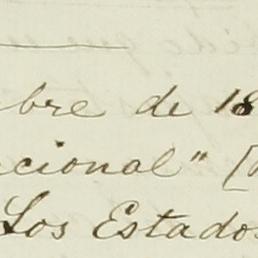 bre de 18
cional" [
Los Estados